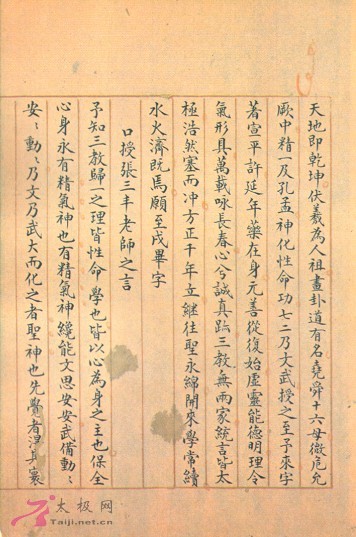 天地即乾坤伏羲為人祖畫卦道有名堯舜十六母微危允
厥中精一及孔孟神化性命功七二乃文武授之至予來字
著宣平許延年藥在身元善從復始虛靈能德明理令
氣形具萬載咏長春心兮誠真跡三教無兩家統言皆太
極浩然塞而冲方正千年立繼往聖永綿開來學常續
水火濟既焉願至戌畢字
口授張三丰老師之言
予知三教歸一之理皆性命學也皆以心為身之主也保全
心身永有精氣神也有精氣神纔能文思安安武備動動
安安動動乃文乃武大而化之者聖神也先覺者得其寰
太极网
Taiji.net.cn